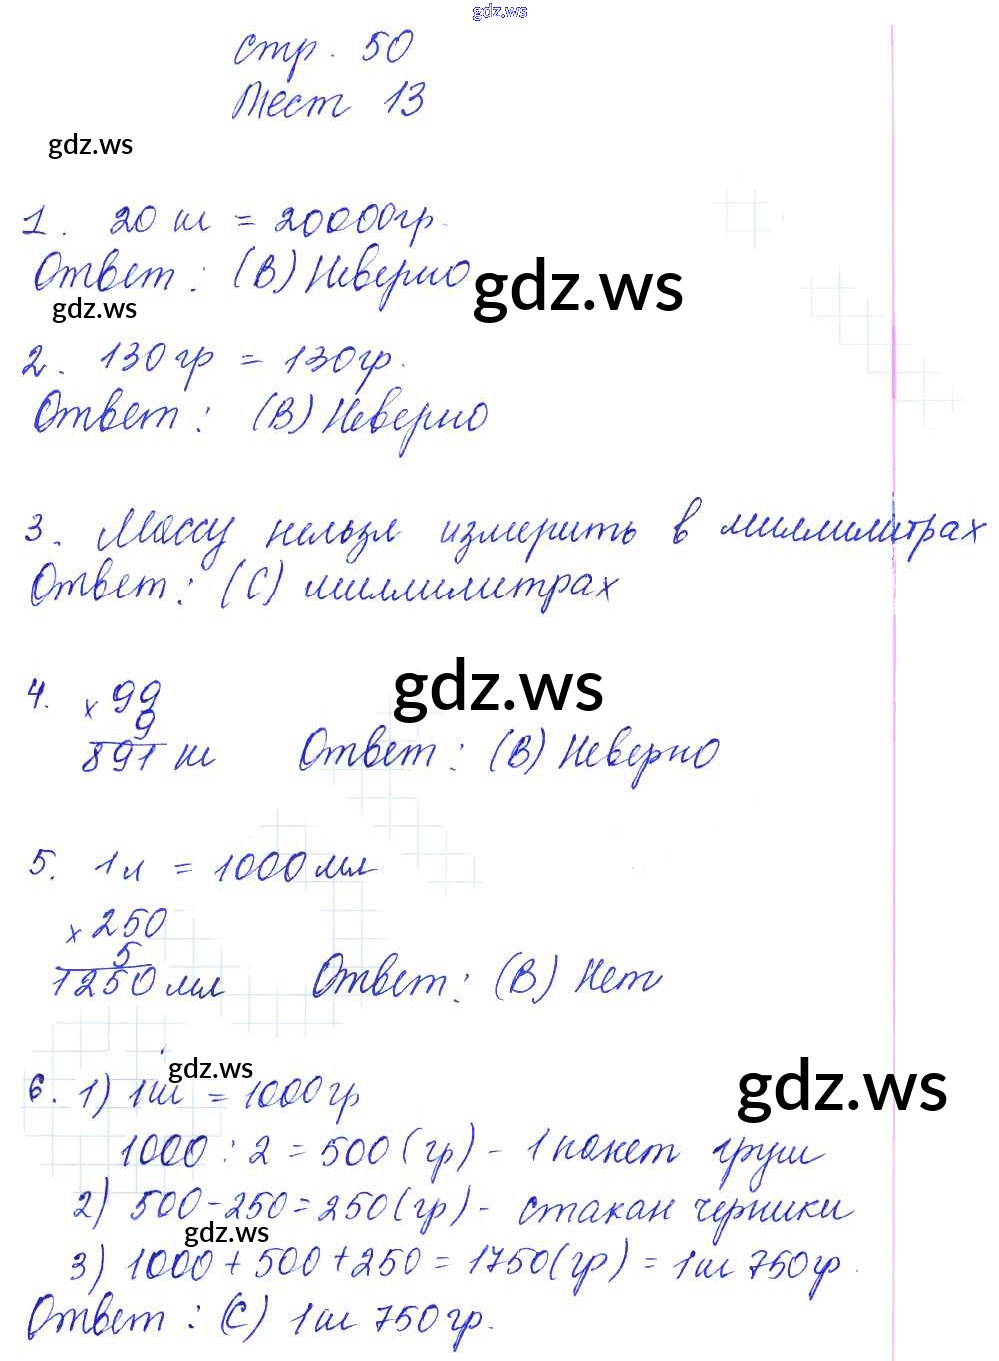 gdz.ws
стр. 50
Тест 13
gdz.ws
1. 20 кг = 20000гр.
Ответ: (В) Неверно
gdz.ws
gdz.ws
2. 130 гр = 130гр.
Ответ: (В) Неверно
3. Массу нельзя измерить в миллилитрах
Ответ: (С) миллилитрах
gdz.ws
4. × 99
9
891 кг Ответ: (В) Неверно
5. 1 л = 1000 мл
× 250
5
1250 мл Ответ: (В) Нет
gdz.ws
gdz.ws
6. 1) 1кг = 1000гр
1000 : 2 = 500 (гр) - 1 пакет груш
2) 500 - 250 = 250 (гр) - стакан черники
gdz.ws
3) 1000 + 500 + 250 = 1750 (гр) = 1кг 750гр.
Ответ: (С) 1 кг 750 гр.